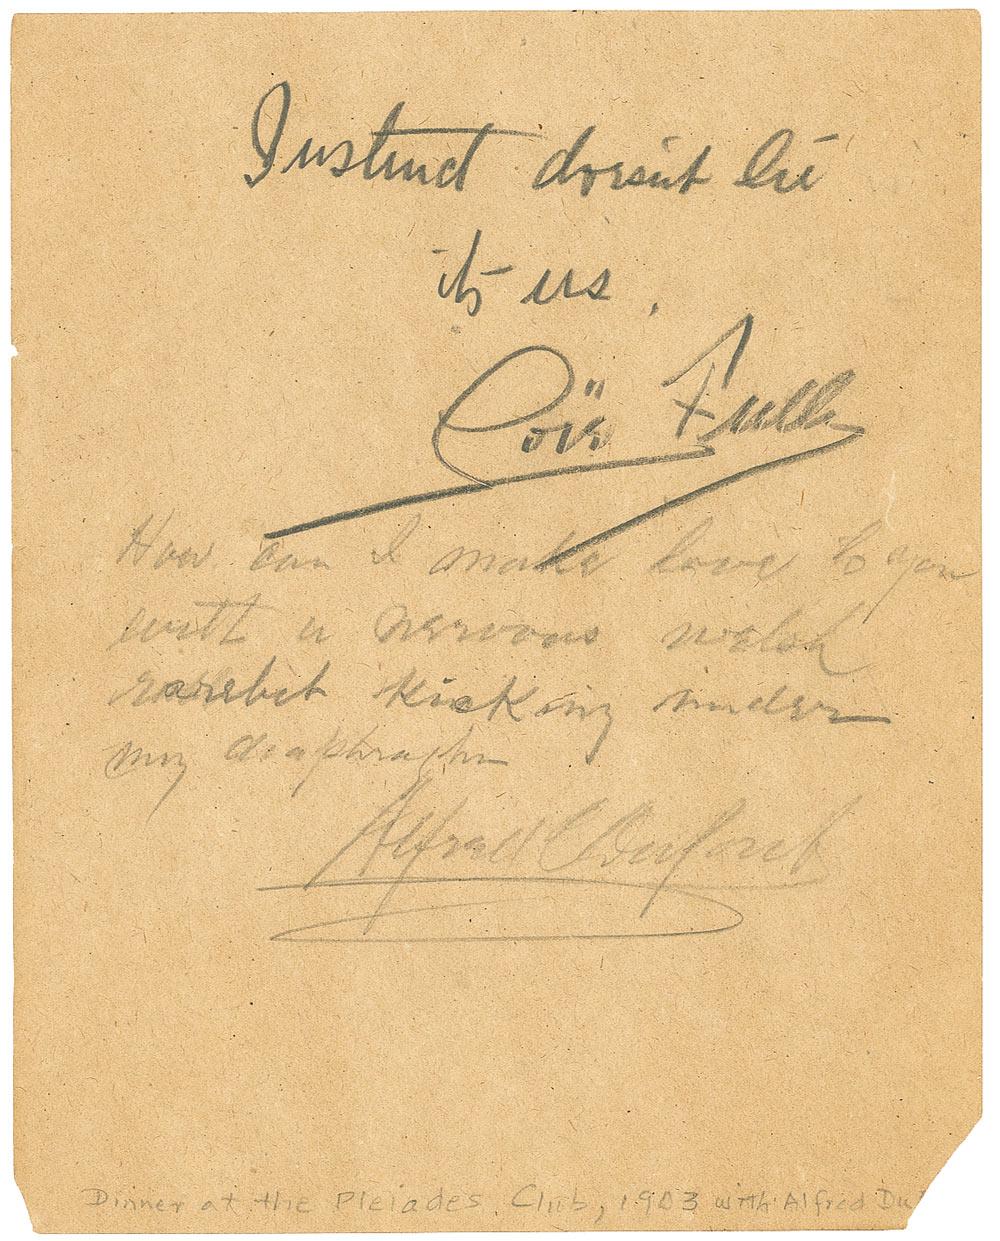 Instinct doesn't lie
to us.
Loïe Fuller
How can I make love to you
with a nervous welsh
rarebit kicking under
my diaphragm
Alfred
Dinner at the Pleiades Club, 1903 with Alfred Du